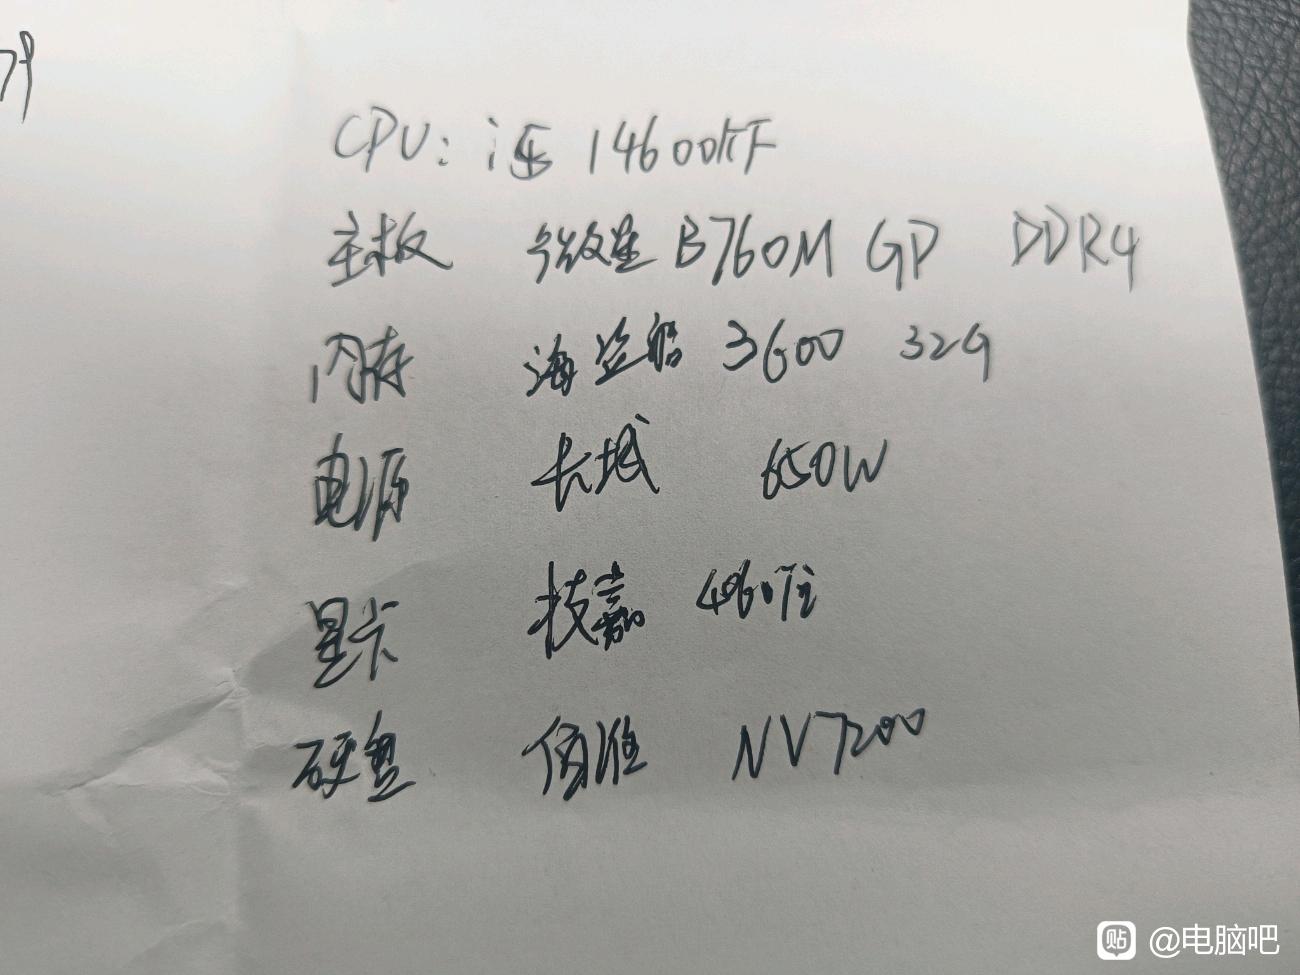 CPU: i5 14600KF
主板 微星 B760M GP DDR4
内存 海盗船 3600 32G
电源 长城 650W
显卡 技嘉 4060Ti
硬盘 佰维 NV7200
@电脑吧